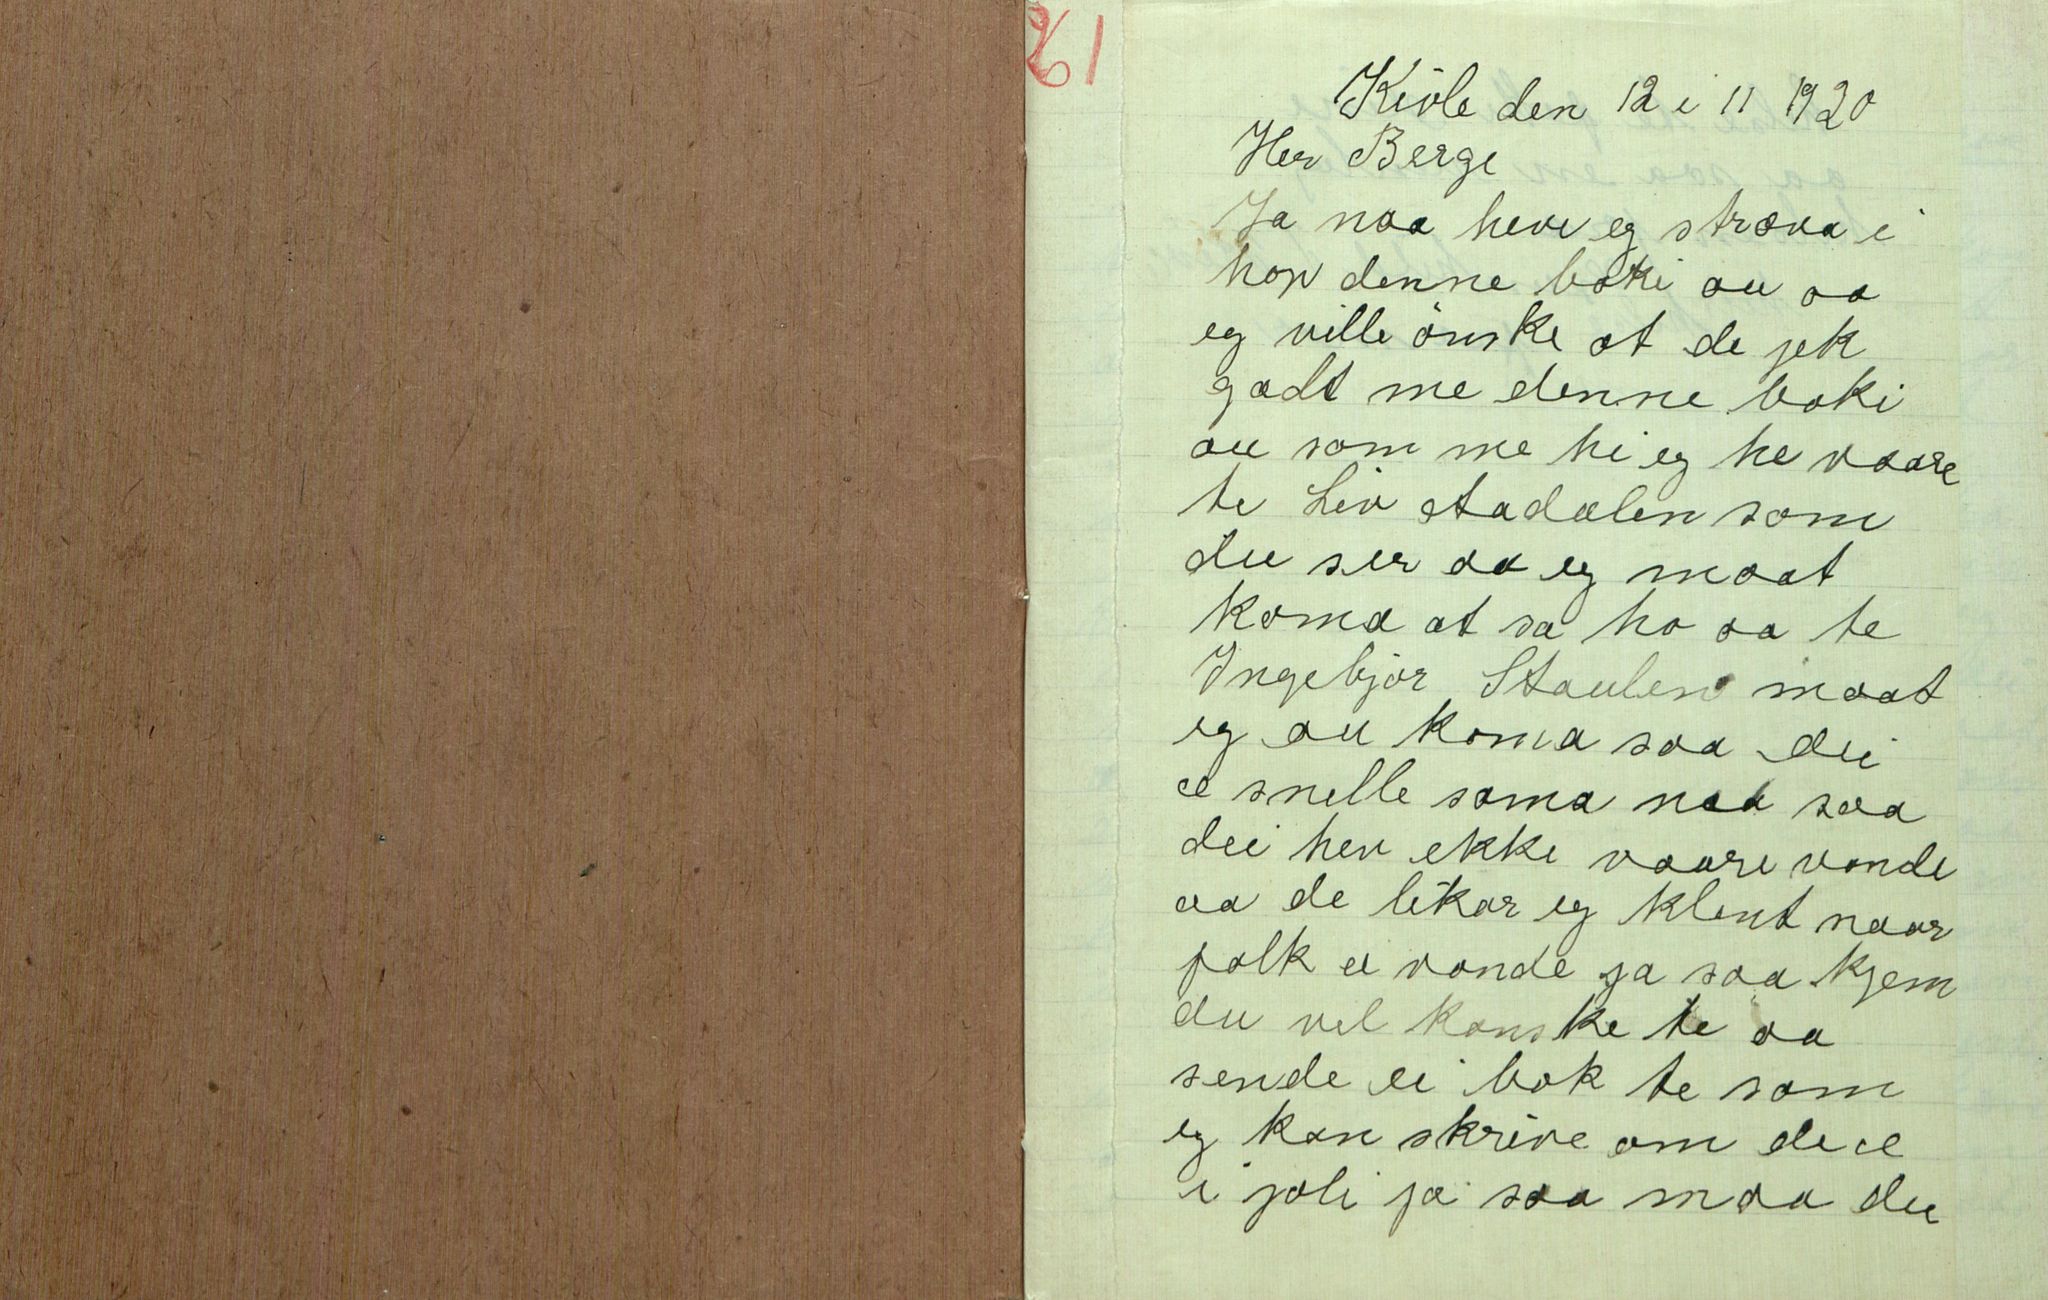 61
Kivle den 12 i 11 1920
Her Berge
Ja naa heve eg stræva i
hop denne boki au aa
eg ville önske at de jek
godt me denne boki
au som me hi eg he vaare
te Liv Aadalen som
du ser aa eg maat
koma at sa ho aa te
Ingebjör Staulen maat
eg au koma saa dei
æ snelle soma naa saa
dei hev ekke vaare vonde
aa de likar eg klent naar
folk æ vonde ja saa kjem
du vel kanske te aa
sende ei bok te som
eg kan skrive om de æ
i joli ja saa maa du